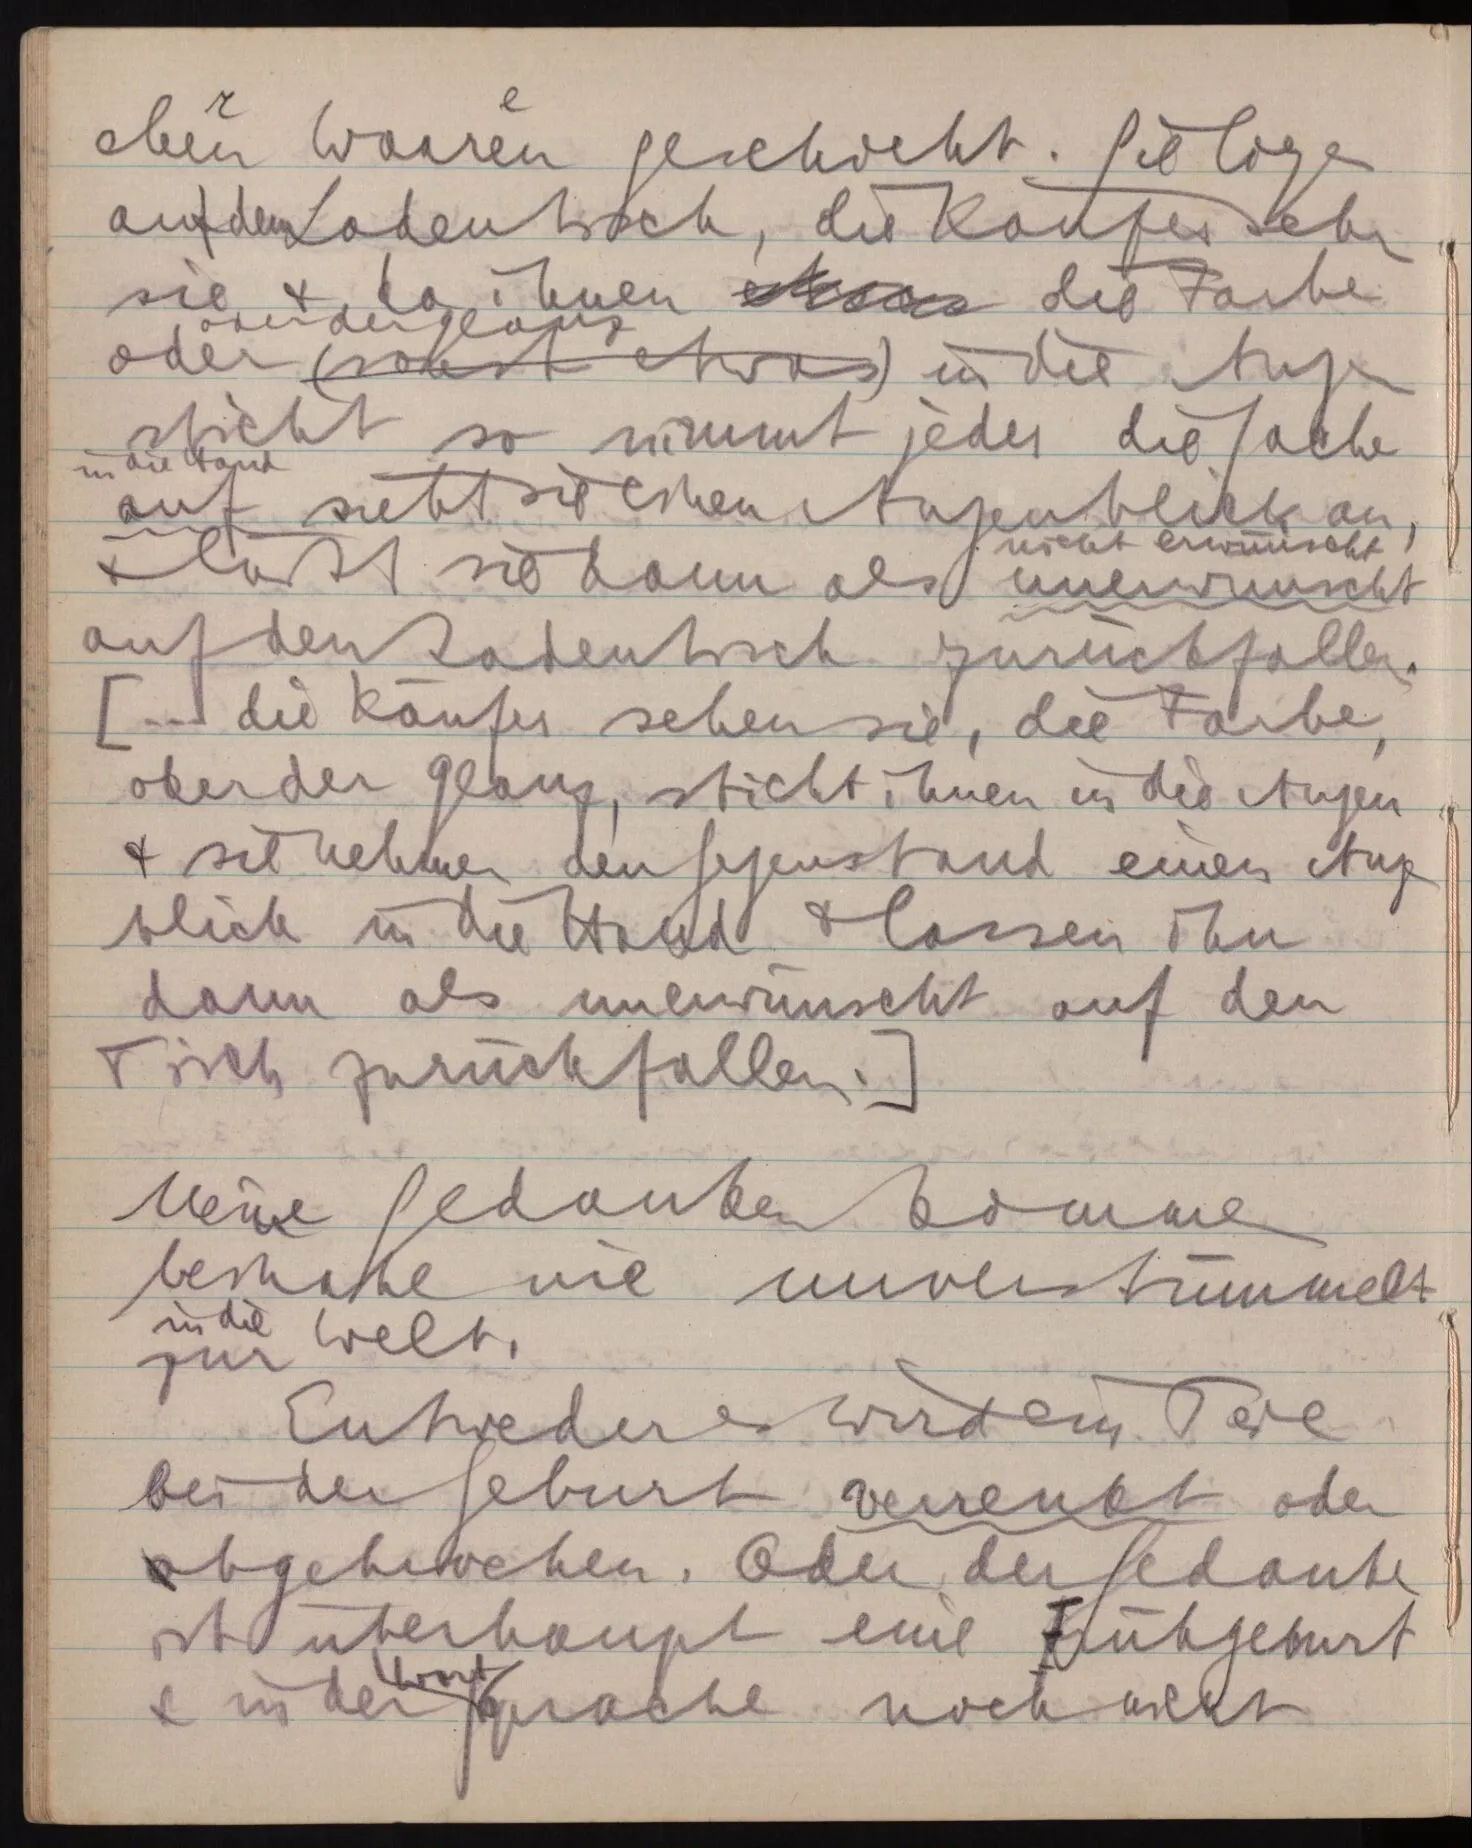 chen Waaren geschieht. Sie liegen
auf dem Ladentisch, die Käufer sehen
sie & da ihnen etwas die Farbe
oder der Glanz
oder (sonst etwas) in die Augen
sticht so nimmt jeder die Sache
in die Hand
auf sieht sie einen Augenblick an,
nicht erwünscht
& läßt sie dann als unerwünscht
auf den Ladentisch zurückfallen.
[... die Käufer sehen sie, die Farbe,
oder der Glanz, sticht ihnen in die Augen
& sie nehmen den Gegenstand einen Augen
blick in die Hand & lassen ihn
dann als unerwünscht auf den
Tisch zurückfallen.]
Meine Gedanken kommen
beinahe nie unverstümmelt
in die
zur Welt.
Entweder es wird ein Teil
bei der Geburt verrenkt oder
abgebrochen. Oder der Gedanke
ist überhaupt eine Frühgeburt
Wort
& in der Sprache noch nicht